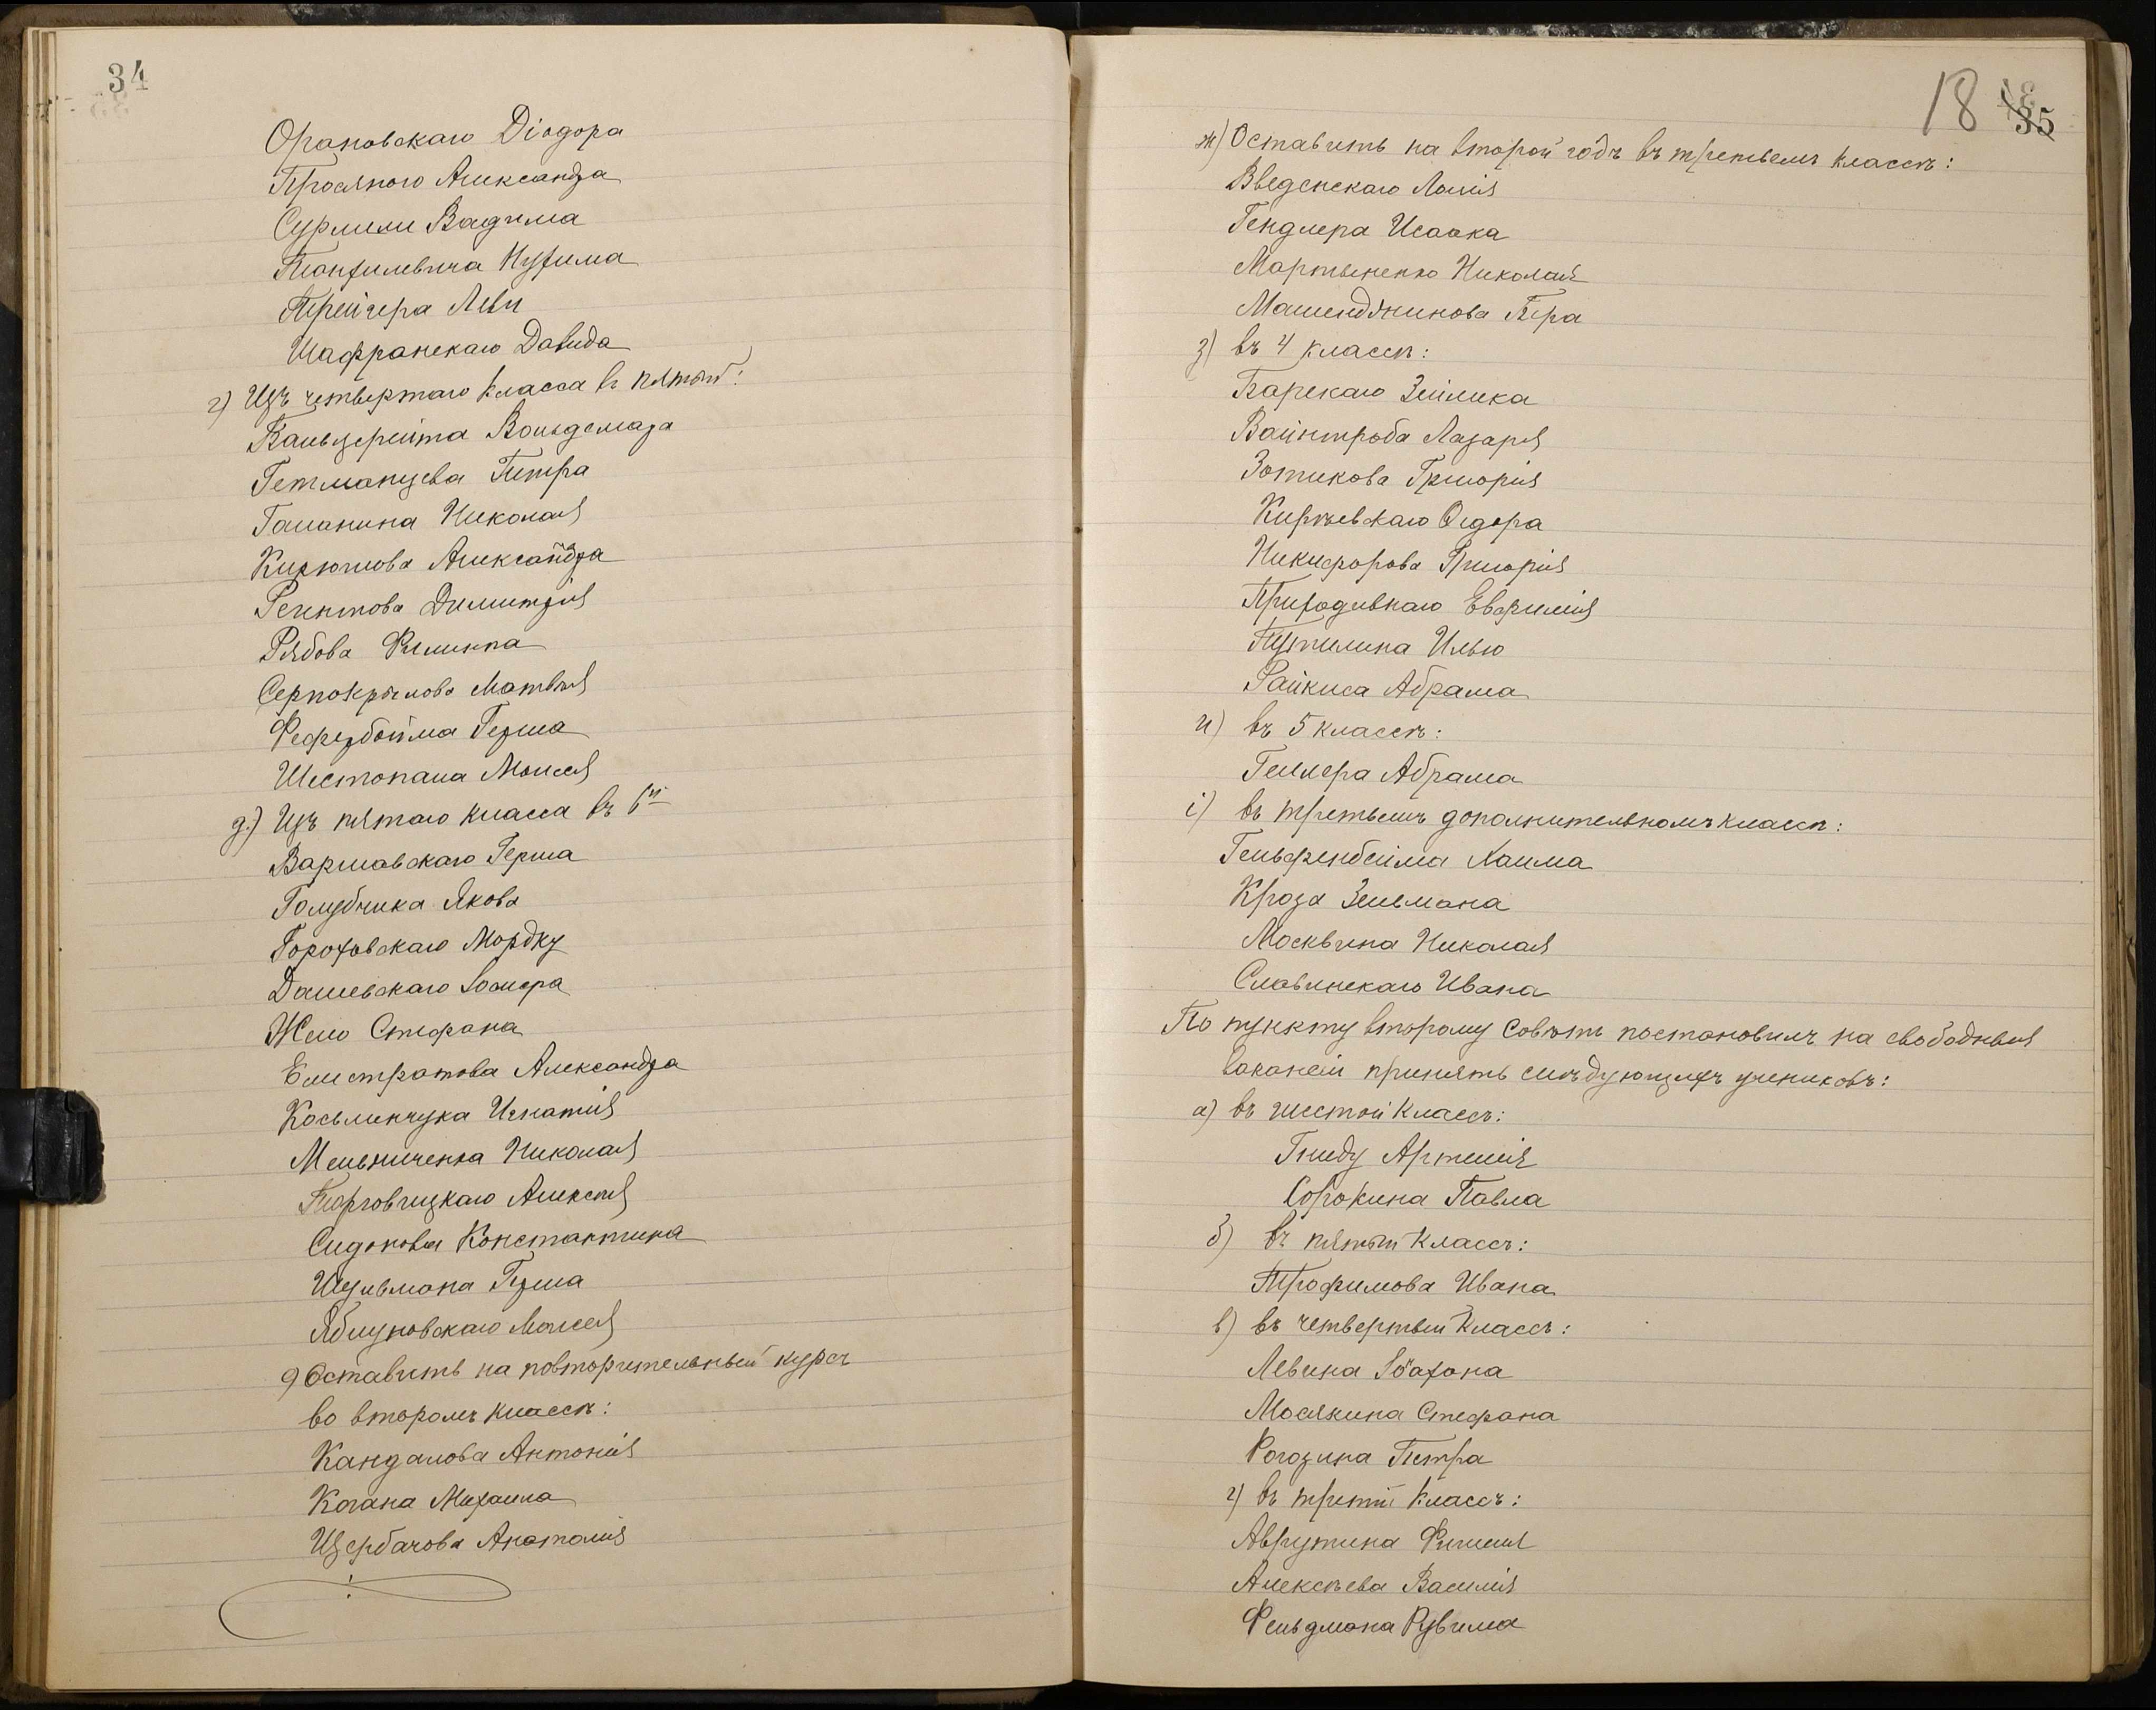 34
Орановскаго Діодора
Просяного Александра
Сурмили Вадима
Нухима
Трейгера Леви
Шафранскаго Давида
г) Изъ четвертаго класса въ пятый:
Вольдемара
Гетманцева Петра
Гашинина Николая
Кирюшова Александра
Регентова Димитрія
Рябова Филиппа
Серпокрылова Матвѣя
Герша
Шестопала Моисея
д) Изъ пятаго класса въ 6й
Варшавскаго Герша
Голубчика Якова
Гороховскаго Мордку
Дашевскаго
Жело Стефана
Елистратова Александра
Косьминчука Игнатія
Мельниченка Николая
Алексѣя
Сидонова Константина
Шульмана Герша
Яблуновскаго Моисея
е) Оставить на повторительный курсъ
во второмъ классѣ:
Кандалова Антонія
Когана Михаила
Щербачова Анатолія
18 35
ж) Оставить на второй годъ въ третьемъ классѣ:
Введенскаго
Гендлера Исаака
Мартыненко Николая
Машенджинова
з) въ 4 классѣ:
Барскаго Зейлика
Вайнтроба Лазаря
Зотикова Григорія
Кирѣевскаго Ѳедора
Никифорова Григорія
Приходивнаго Евфимія
Путилина Илью
Райкиса Абрама
и) въ 5 классѣ:
Геллера Абрама
і) въ третьемъ дополнительномъ классѣ:
Гельфенбейма Хаима
Кроза Зельмана
Москвина Николая
Славинскаго Ивана
По пункту второму Совѣтъ постановилъ на свободныя
вакансіи принять слѣдующихъ учениковъ:
а) въ шестой классъ:
Гниду Артемія
Сорокина Павла
б) въ пятый классъ:
Трофимова Ивана
в) въ четвертый классъ:
Левина
Мосякина Стефана
Рогозина Петра
г) въ третій классъ:
Аврутина
Алексѣева Василія
Фельдмана Рувима